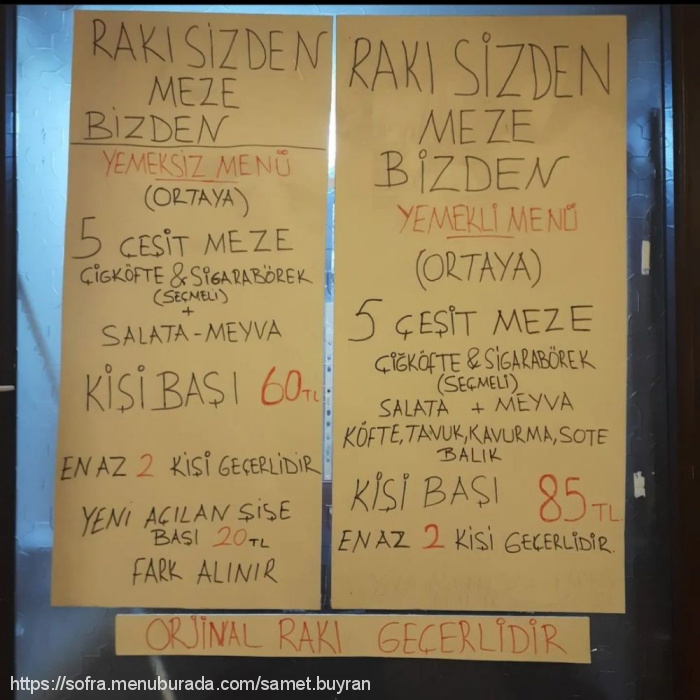 RAKI SİZDEN
MEZE
BİZDEN
YEMEKSİZ MENÜ
(ORTAYA)
5 ÇEŞİT MEZE
ÇİGKÖFTE & SİGARABÖREK
(SEÇMELİ)
+
SALATA - MEYVA
KİŞİ BAŞI 60 TL
EN AZ 2 KİŞİ GEÇERLİDİR
YENİ AÇILAN ŞİŞE
BAŞI 20 TL
FARK ALINIR
RAKI SİZDEN
MEZE
BİZDEN
YEMEKLİ MENÜ
(ORTAYA)
5 ÇEŞİT MEZE
ÇİĞKÖFTE & SİGARABÖREK
(SEÇMELİ)
SALATA + MEYVA
KÖFTE, TAVUK, KAVURMA, SOTE
BALIK
KİŞİ BAŞI 85 TL.
EN AZ 2 KİŞİ GEÇERLİDİR.
ORJİNAL RAKI GEÇERLİDİR
https://sofra.menuburada.com/samet.buyran